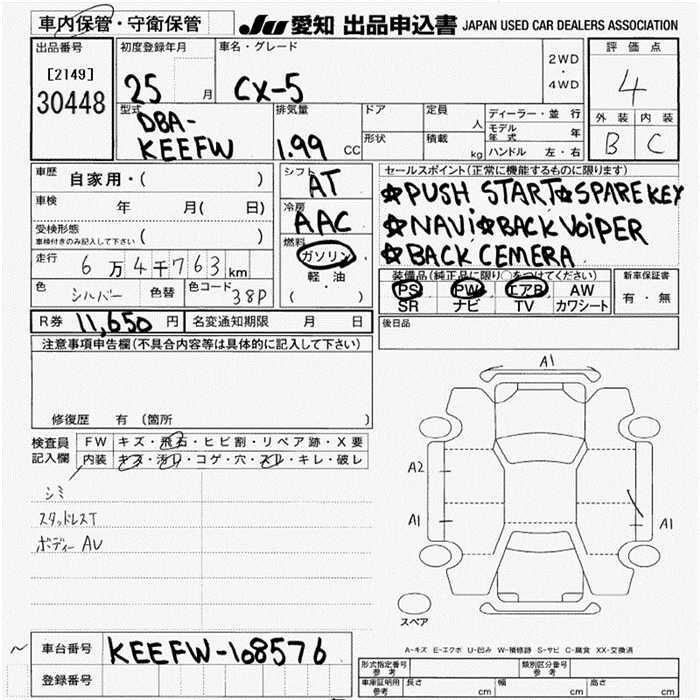 車内保管・守衛保管
JU 愛知 出品申込書 JAPAN USED CAR DEALERS ASSOCIATION
出品番号
[2149]
30448
初度登録年月
25 月
車名・グレード
CX-5
2WD
・
4WD
評価点
4
外装 内装
B C
型式
DBA-
KEEFW
排気量
1.99 CC
ドア
形状
定員 人
積載 kg
ディーラー・並行
モデル年式 年
ハンドル 左・右
車歴 自家用・( )
車検 年 月( 日)
受検形態
車検付きのみ記入して下さい ( )
走行 6万4千763 km
色 シルバー 色替 色コード 38P
シフト
AT
冷房
AAC
燃料
ガソリン
軽・油
( ・ )
セールスポイント(正常に機能するものに限ります)
☆PUSH START☆SPARE KEY
☆NAVi☆BACK VOiPER
☆BACK CEMERA
装備品(純正品に限り○をつけてください)
PS PW エアB AW
SR ナビ TV カワシート
新車保証書
有・無
R券 11,650 円 名変通知期限 月 日
後日品
注意事項申告欄(不具合内容等は具体的に記入して下さい)
修復歴 有 (箇所 )
検査員
記入欄
FW キズ・飛石・ヒビ割・リペア跡・X要
内装 キズ・汚れ・コゲ・穴・スレ・キレ・破レ
シミ
スタッドレスT
ボディー AU
A1
A2
A1
A1
スペア
A-キズ E-エクボ U-凹み W-補修跡 S-サビ C-腐食 XX-交換済
~ 車台番号 KEEFW-108576
登録番号
形式指定番号
参考
類別区分番号
参考
車庫証明用
参考
長さ cm 幅 cm 高さ cm